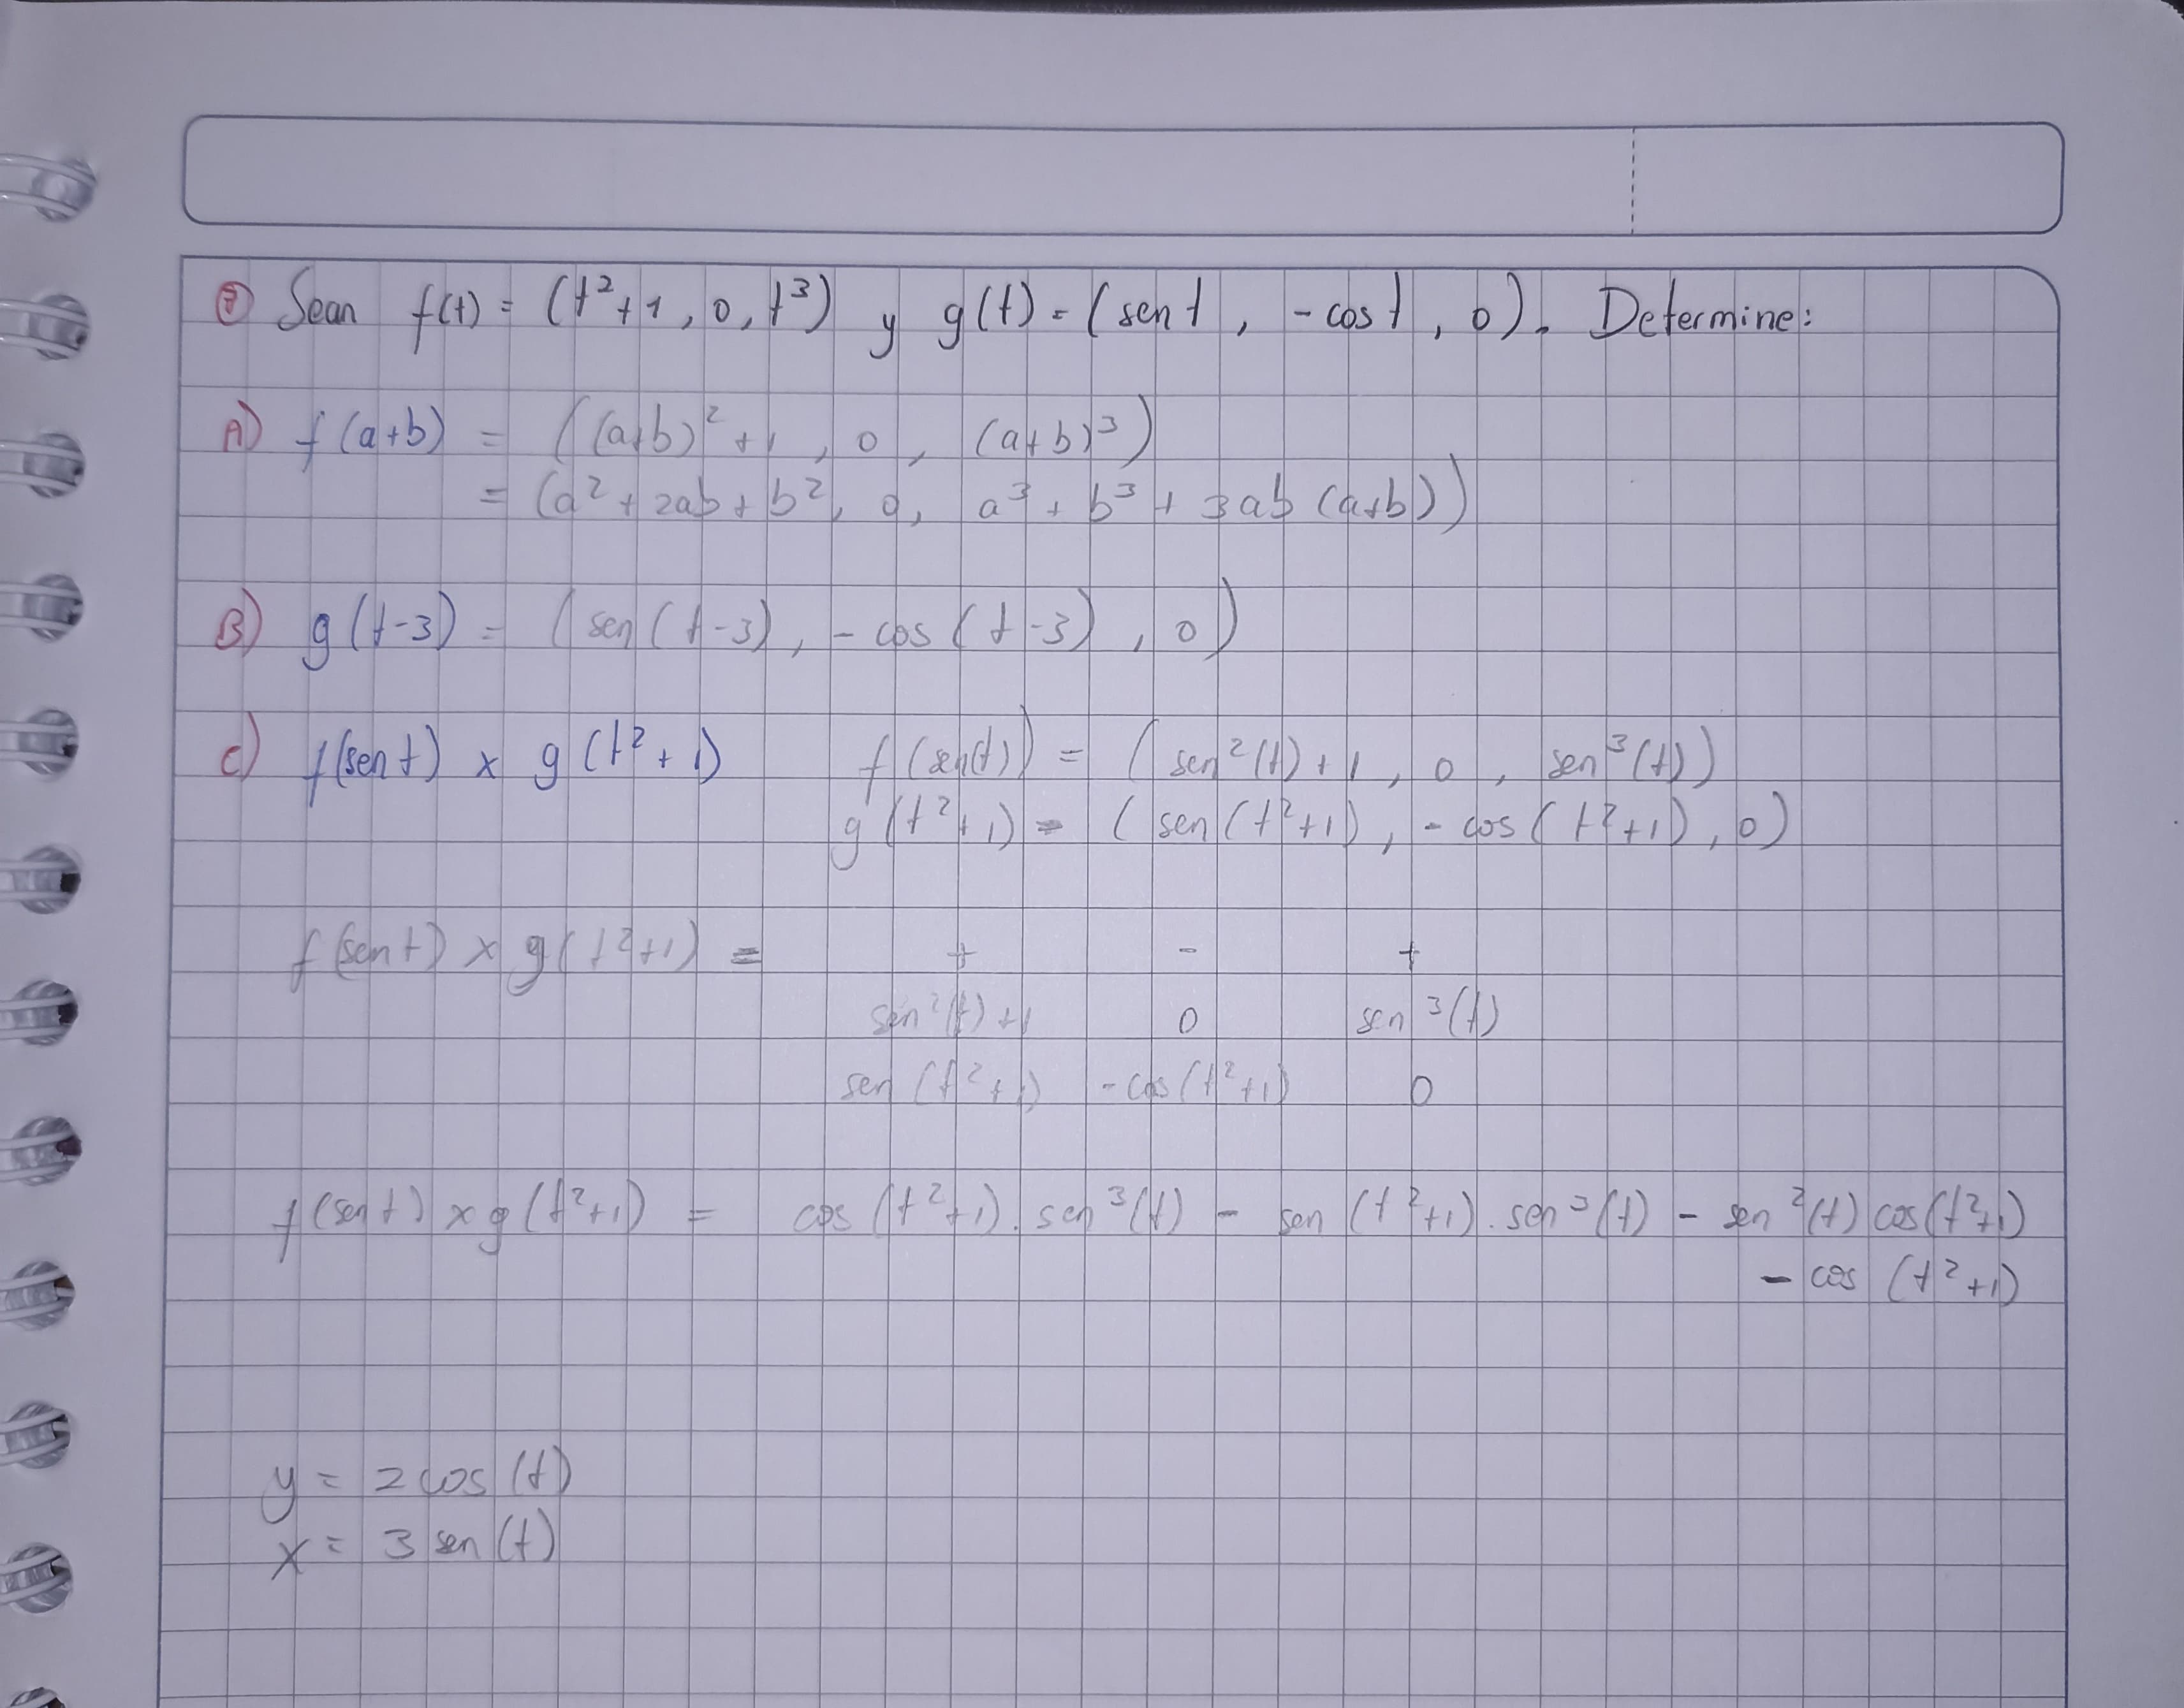 ⑦ Sean f(t) = (t²+1, 0, t³) y g(t) = (sen t, -cos t, 0). Determine:
A) f(a+b) = ((a+b)²+1, 0, (a+b)³)
= (a²+2ab+b², 0, a³+b³+3ab(a+b))
B) g(t-3) = (sen(t-3), -cos(t-3), 0)
C) f(sen t) x g(t²+1) f(sen(t)) = (sen²(t)+1, 0, sen³(t))
g(t²+1) = (sen(t²+1), -cos(t²+1), 0)
f(sen t) x g(t²+1) = + - +
sen²(t)+1 0 sen³(t)
sen(t²+1) -cos(t²+1) 0
f(sen t) x g(t²+1) = cos(t²+1).sen³(t) - sen(t²+1).sen³(t) - sen²(t)cos(t²+1)
- cos(t²+1)
y = 2cos(t)
x = 3sen(t)